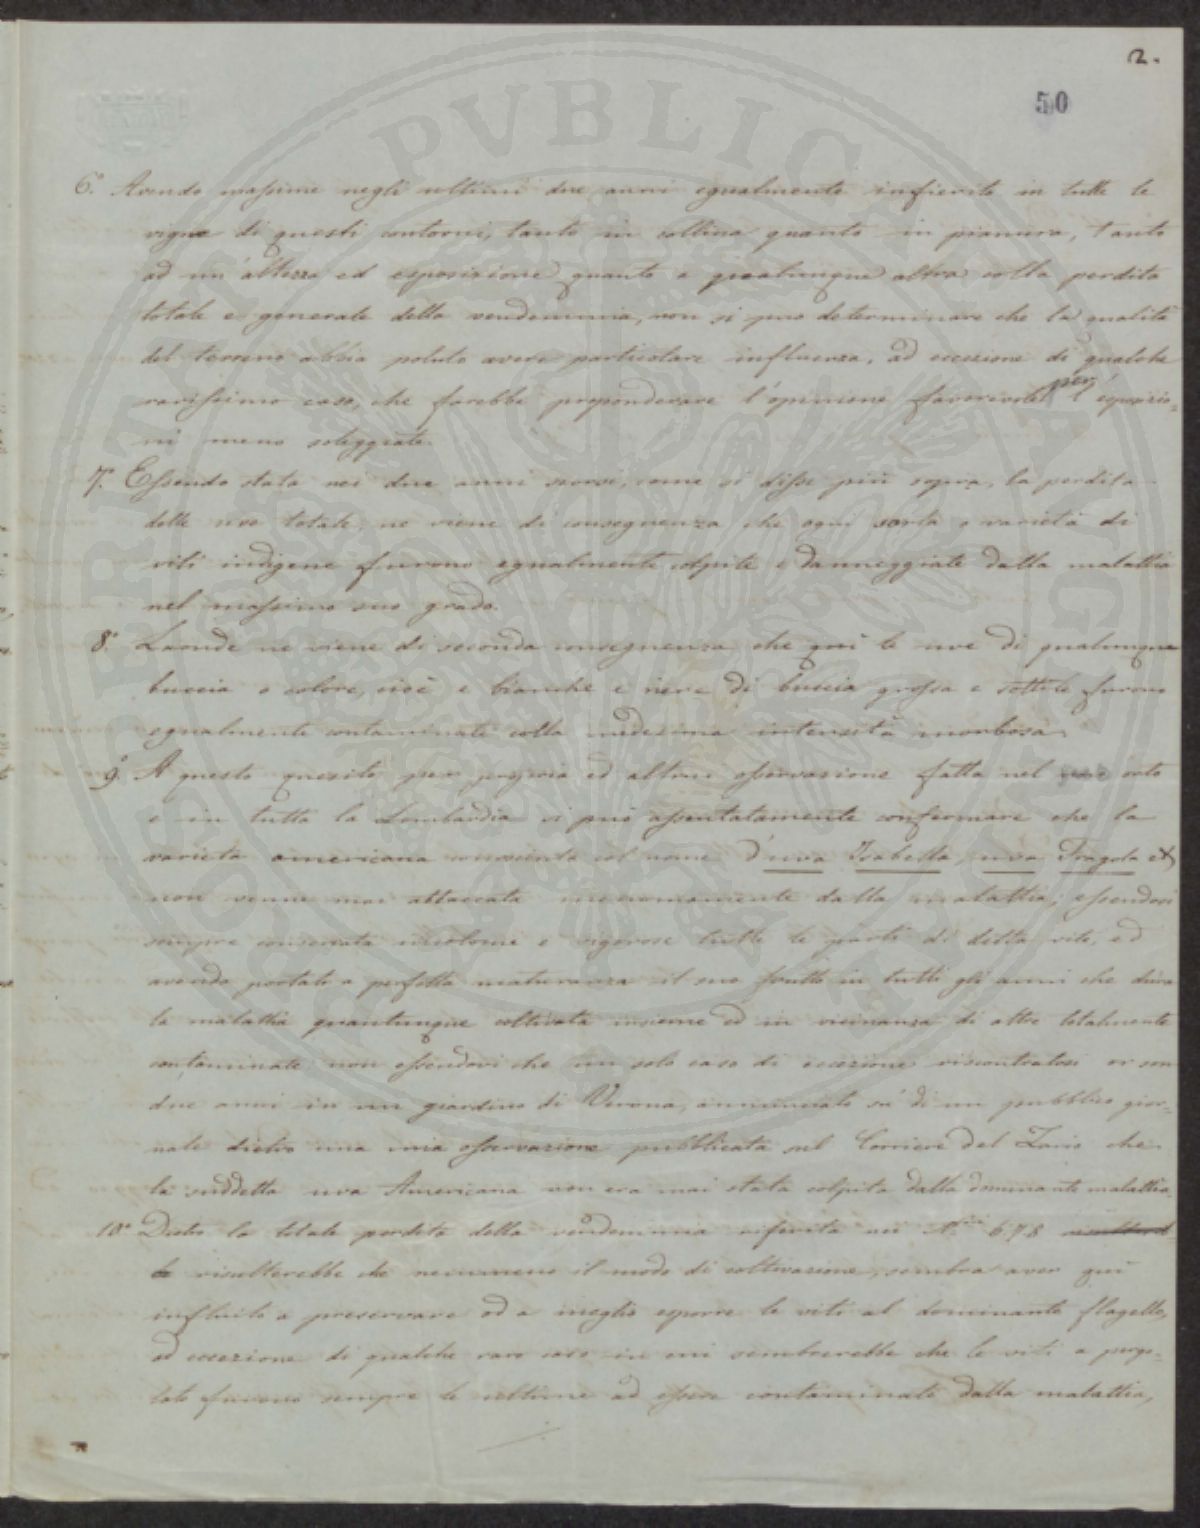 2.
50
6.° Avendo massime negli ultimi due anni egualmente infierito in tutte le
vigne di questi contorni, tanto in collina quanto in pianura, tanto
ad un'altezza ed esposizione quanto a qualunque altra colla perdita
totale e generale della vendemmia, non si può determinare che la qualità
del terreno abbia potuto avere particolare influenza, ad eccezione di qualche
rarissimo caso, che farebbe preponderare l'opinione favorevole per l'esposizio=
ni meno soleggiate.
7.° Essendo stata nei due anni scorsi, come si disse più sopra, la perdita
delle uve totale, ne viene di conseguenza che ogni sorta o varietà di
viti indigene furono egualmente colpite e danneggiate dalla malattia
nel massimo suo grado.
8.° Laonde ne viene di seconda conseguenza che qui le uve di qualunque
buccia o colore, cioè e bianche e nere di buccia grossa e sottile furono
egualmente contaminate colla medesima intensità morbosa.
9.° A questo quesito per propria ed altrui osservazione fatta nel orto
e in tutta la Lombardia si può assolutamente confermare che la
varietà americana conosciuta col nome d'uva Isabella, uva Fragola
non venne mai attaccata menomamente dalla malattia; essendosi
sempre conservata incolume e vigorose tutte le parti di detta vite, ed
avendo portato a perfetta maturanza il suo frutto in tutti gli anni che dura
la malattia quantunque coltivata insieme ed in vicinanza di altre totalmente
contaminate non essendovi che un solo caso di eccezione riscontratosi or son
due anni in un giardino di Verona, annunciato su di un pubblico gior=
nale dietro una mia osservazione pubblicata sul Corriere del Lario che
la suddetta uva Americana non era mai stata colpita dalla dominante malattia.
10.° Dietro la totale perdita della vendemmia riferita nei N.ri 6.7.8
risulterebbe che nemmeno il modo di coltivazione, sembra aver qui
influito a preservare od a meglio esporre le viti al dominante flagello,
ad eccezione di qualche raro caso in cui sembrerebbe che le viti a pergo=
lato furono sempre le ultime ad essere contaminate dalla malattia,